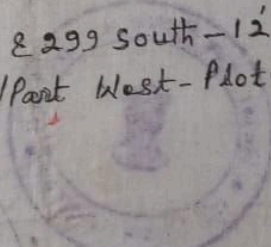 & 299 South - 12'
Part West - Plot